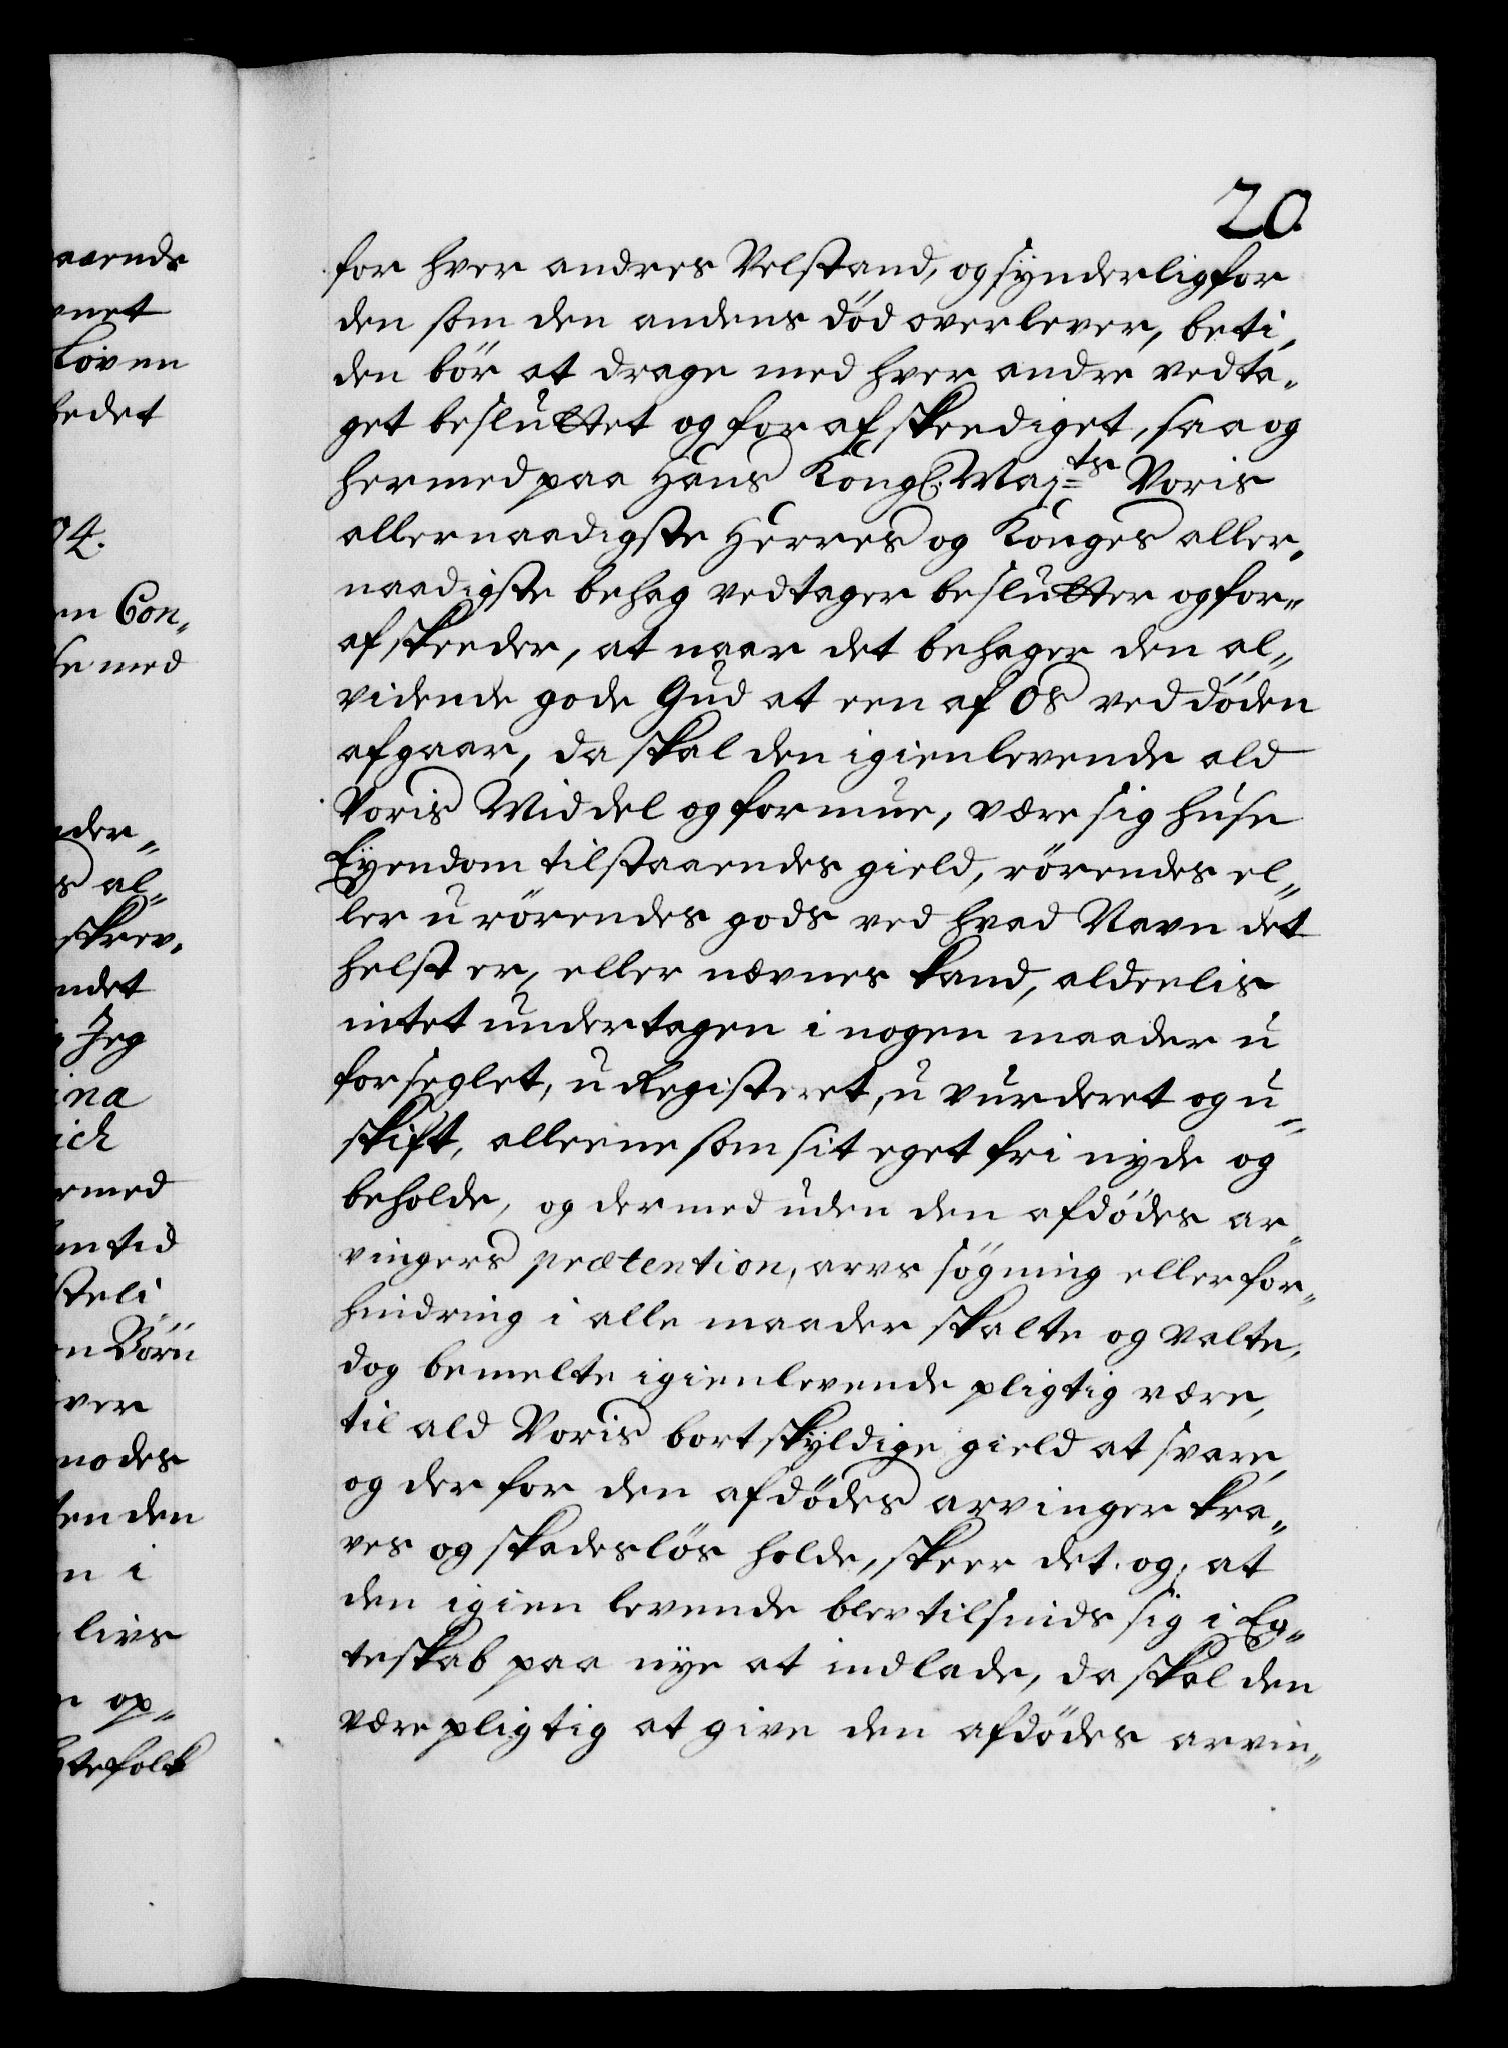 20.
for hver andres Velstand, og synderlig for
den som den andens död overlever, beti,
den bör at drage med hver andre vedta„
get besluttet og for afskeediget, saa og
hermed paa Hans Kongl. Maj.ts Voris
allernaadigste Herres og Konges aller„
naadigste behag vedtager beslutter og for„
afskeeder, at naar det behager den al„
vidende gode Gud at een af Os ved döden
afgaar, da skal den igienlevende ald
Voris Middel og formue, være sig huse
Eyendom tilstaaendes gield, rörendes el„
ler u rörendes gods ved hvad Navn det
helst er, eller nævnes kand, aldeelis
intet undertagen i nogen maader u
forseglet, u Registeret, u vurderet og u„
skift, alleene som sit eget fri nyde og
beholde, og dermed uden den afdödes ar„
vingers prætention, arvs sögning eller for„
hindring i alle maader skalte og valte,
dog bemelte igienlevende pligtig være,
til ald Voris bortskyldige gield at svare,
og der for den afdödes arvinger kra„
ves og skadeslös holde, skeer det og, at
den igien levende blev tilsinds sig i Eg„
teskab paa nye at indlade, da skal den
være pligtig at give den afdödes arvin„
aarende
vnet
Loven
hedet
94.
en Con„
se med
nder„
s al„
skrev„
ndet
Jeg
ina
ich
ermed
mtid
steli
n Börn
ver
modes
ten den
n i
livs
n op„
gtefolk